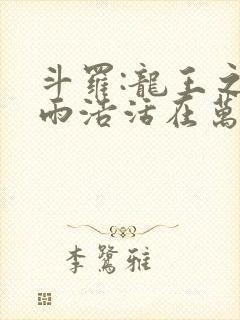 斗羅:龍王之
雨浩活在萬
李鷺雅